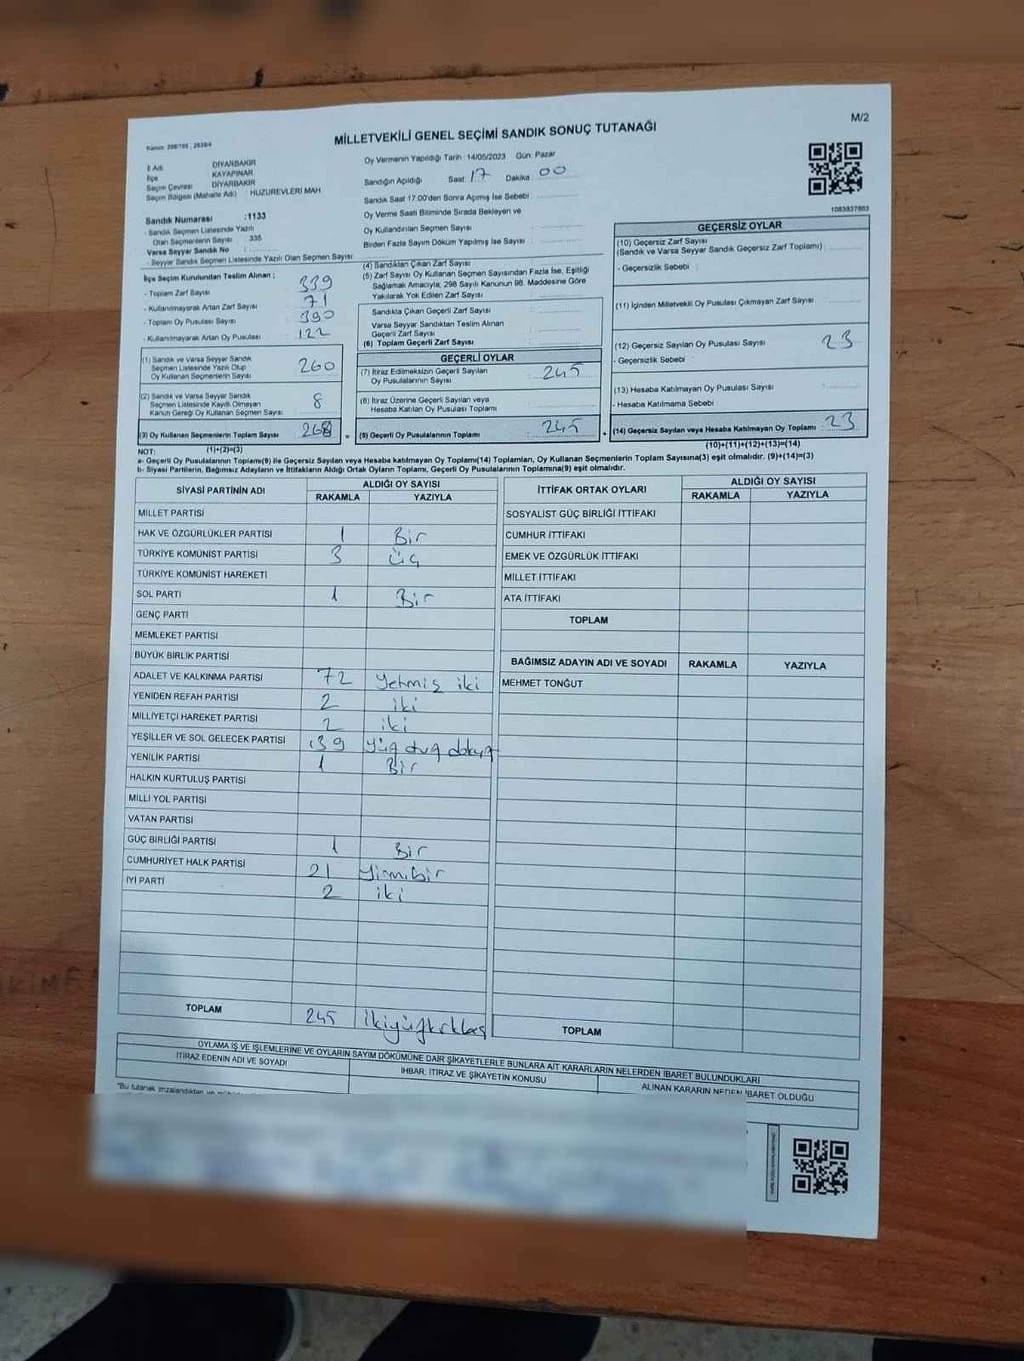 M/2
MİLLETVEKİLİ GENEL SEÇİMİ SANDIK SONUÇ TUTANAĞI
İl Adı DİYARBAKIR
İlçe KAYAPINAR
Seçim Çevresi DİYARBAKIR
Seçim Bölgesi (Mahalle Adı) : HUZUREVLERİ MAH.
Sandık Numarası :1133
- Sandık Seçmen Listesinde Yazılı
Olan Seçmenlerin Sayısı 335
Varsa Seyyar Sandık No :
- Seyyar Sandık Seçmen Listesinde Yazılı Olan Seçmen Sayısı
Oy Vermenin Yapıldığı Tarih 14/05/2023 Gün: Pazar
Sandığın Açıldığı Saat 17 Dakika 00
Sandık Saat 17:00'den Sonra Açılmış İse Sebebi
Oy Verme Saati Bitiminde Sırada Bekleyen ve
Oy Kullandırılan Seçmen Sayısı
Birden Fazla Sayım Döküm Yapılmış İse Sayısı
1083837803
İlçe Seçim Kurulundan Teslim Alınan ;
- Toplam Zarf Sayısı 339
- Kullanılmayarak Artan Zarf Sayısı 71
- Toplam Oy Pusulası Sayısı 390
- Kullanılmayarak Artan Oy Pusulası 122
(1) Sandık ve Varsa Seyyar Sandık
Seçmen Listesinde Yazılı Olup
Oy Kullanan Seçmenlerin Sayısı 260
(2) Sandık ve Varsa Seyyar Sandık
Seçmen Listesinde Kayıtlı Olmayan
Kanun Gereği Oy Kullanan Seçmen Sayısı 8
(3) Oy Kullanan Seçmenlerin Toplam Sayısı 268 =
(1)+(2)=(3)
(4) Sandıktan Çıkan Zarf Sayısı
(5) Zarf Sayısı Oy Kullanan Seçmen Sayısından Fazla İse, Eşitliği
Sağlamak Amacıyla; 298 Sayılı Kanunun 98. Maddesine Göre
Yakılarak Yok Edilen Zarf Sayısı
Sandıkta Çıkan Geçerli Zarf Sayısı
Varsa Seyyar Sandıktan Teslim Alınan
Geçerli Zarf Sayısı
(6) Toplam Geçerli Zarf Sayısı
GEÇERLİ OYLAR
(7) İtiraz Edilmeksizin Geçerli Sayılan
Oy Pusulalarının Sayısı 245
(8) İtiraz Üzerine Geçerli Sayılan veya
Hesaba Katılan Oy Pusulası Toplamı
(9) Geçerli Oy Pusulalarının Toplamı 245 +
GEÇERSİZ OYLAR
(10) Geçersiz Zarf Sayısı
(Sandık ve Varsa Seyyar Sandık Geçersiz Zarf Toplamı)
- Geçersizlik Sebebi :
(11) İçinden Milletvekili Oy Pusulası Çıkmayan Zarf Sayısı
(12) Geçersiz Sayılan Oy Pusulası Sayısı 23
- Geçersizlik Sebebi
(13) Hesaba Katılmayan Oy Pusulası Sayısı
- Hesaba Katılmama Sebebi
(14) Geçersiz Sayılan veya Hesaba Katılmayan Oy Toplamı 23
(10)+(11)+(12)+(13)=(14)
NOT:
a- Geçerli Oy Pusulalarının Toplamı(9) ile Geçersiz Sayılan veya Hesaba katılmayan Oy Toplamı(14) Toplamları, Oy Kullanan Seçmenlerin Toplam Sayısına(3) eşit olmalıdır. (9)+(14)=(3)
b- Siyasi Partilerin, Bağımsız Adayların ve İttifakların Aldığı Ortak Oyların Toplamı, Geçerli Oy Pusulalarının Toplamına(9) eşit olmalıdır.
SİYASİ PARTİNİN ADI ALDIĞI OY SAYISI
RAKAMLA YAZIYLA
MİLLET PARTİSİ
HAK VE ÖZGÜRLÜKLER PARTİSİ 1 Bir
TÜRKİYE KOMÜNİST PARTİSİ 3 üç
TÜRKİYE KOMÜNİST HAREKETİ
SOL PARTİ 1 Bir
GENÇ PARTİ
MEMLEKET PARTİSİ
BÜYÜK BİRLİK PARTİSİ
ADALET VE KALKINMA PARTİSİ 72 yetmiş iki
YENİDEN REFAH PARTİSİ 2 iki
MİLLİYETÇİ HAREKET PARTİSİ 2 iki
YEŞİLLER VE SOL GELECEK PARTİSİ 139
YENİLİK PARTİSİ 1 Bir
HALKIN KURTULUŞ PARTİSİ
MİLLİ YOL PARTİSİ
VATAN PARTİSİ
GÜÇ BİRLİĞİ PARTİSİ 1 Bir
CUMHURİYET HALK PARTİSİ 21 yirmibir
İYİ PARTİ 2 iki
TOPLAM 245
İTTİFAK ORTAK OYLARI ALDIĞI OY SAYISI
RAKAMLA YAZIYLA
SOSYALİST GÜÇ BİRLİĞİ İTTİFAKI
CUMHUR İTTİFAKI
EMEK VE ÖZGÜRLÜK İTTİFAKI
MİLLET İTTİFAKI
ATA İTTİFAKI
TOPLAM
BAĞIMSIZ ADAYIN ADI VE SOYADI RAKAMLA YAZIYLA
MEHMET TONĞUT
TOPLAM
OYLAMA İŞ VE İŞLEMLERİNE VE OYLARIN SAYIM DÖKÜMÜNE DAİR ŞİKAYETLERLE BUNLARA AİT KARARLARIN NELERDEN İBARET BULUNDUKLARI
İTİRAZ EDENİN ADI VE SOYADI
İHBAR, İTİRAZ VE ŞİKAYETİN KONUSU
ALINAN KARARIN NEDEN İBARET OLDUĞU
"Bu tutanak imzalandıktan ve